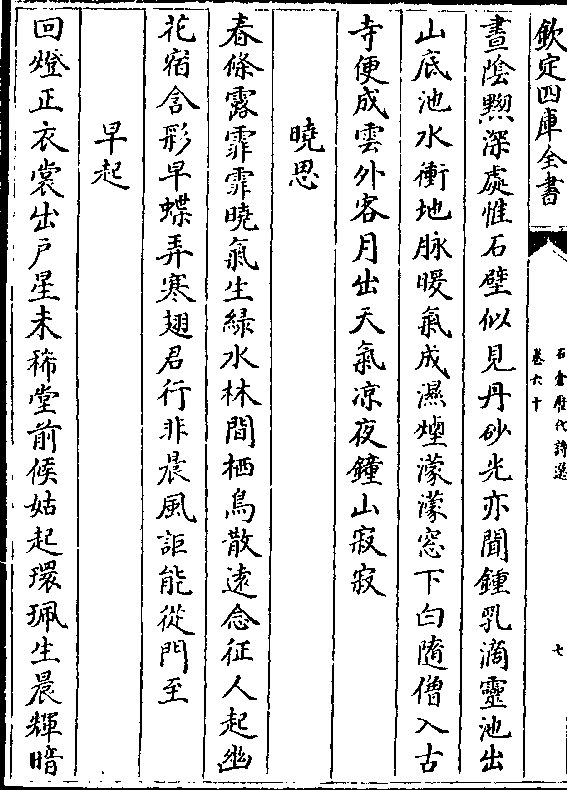 欽定四庫全書
石倉歷代詩選
卷六十
七
晝陰黝深處惟石壁似見丹砂光亦聞鍾乳滴靈池出
山底池水衝地脉暖氣成濕煙濛濛窓下白隨僧入古
寺便成雲外客月出天氣凉夜鐘山寂寂
曉思
春條露霏霏曉氣生緑水林間栖鳥散逺念征人起幽
花宿含彩早蝶弄寒翅君行非晨風詎能從門至
早起
回燈正衣裳出戶星未稀堂前候姑起環珮生晨輝暗